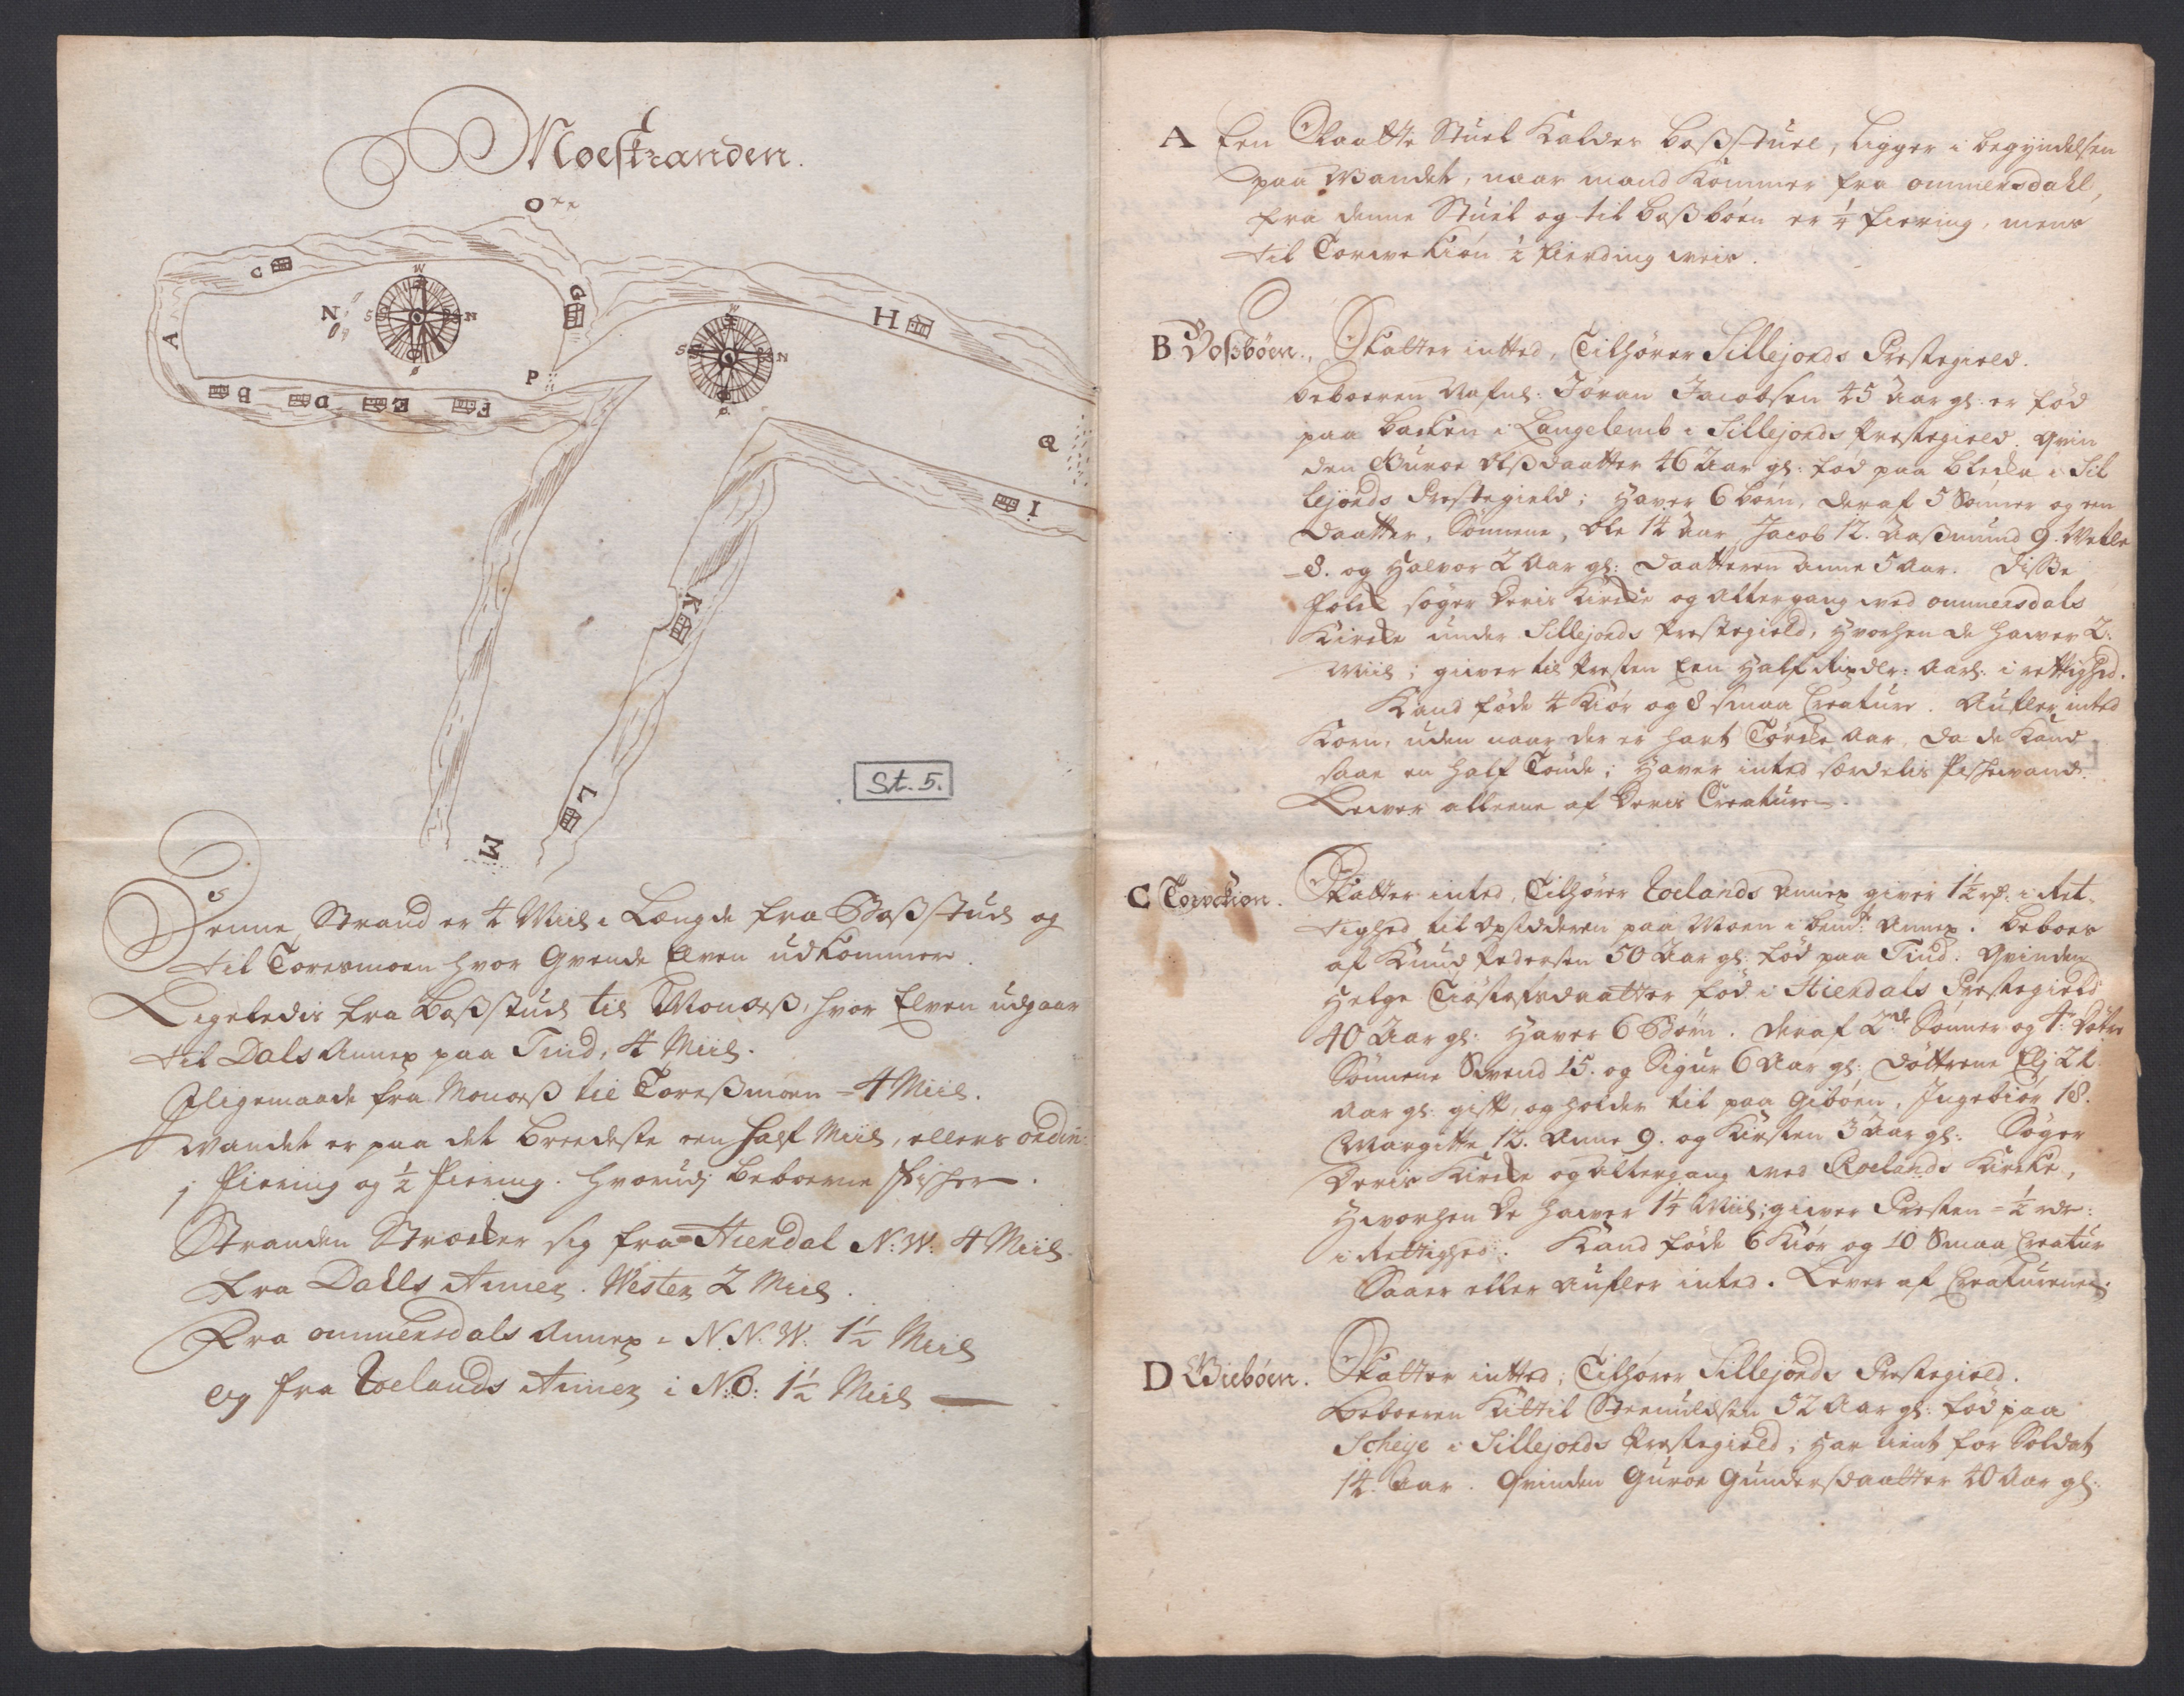 Moestranden.
O
C
W
S
N
O
N
A
G
P
B
D
E
F
W
S
N
O
H
Q
I
K
L
M
St. 5.
Denne Strand er 4 Miil i Længde fra Bosstuel og
til Toresmoen hvor Qvende Elven udkommer.
Ligeledis fra Bosstuel til Monoss, hvor Elven udgaar
til Dals Annex paa Tind, 4 Miil.
Iligemaade fra Monoss til Toressmoen = 4 Miil.
Wandet er paa det breedeste een half Miil, ellers ordin:
j fiering og ½ fiering. hvorudj beboerne fisker.
Stranden Strecker sig fra Hierdal N: W: 4 Miil
fra Dalls Annex. Wester 2 Miil.
Fra ommersdals Annex = N. N: W: 1½ Miil
og fra Roelands Annex i N: O: 1½ Miil
A Een Slaatte Stuel Kaldes Bosstuel, ligger i begyndelsen
paa Wandet, naar mand kommer fra ommersdahl,
fra denne Stuel og til Bossbøen er ¼ fiering, mens
til Torvekiøn ½ fierding veis.
B Vossbøen. Skatter intted, Tilhører Sillejords Prestegield.
beboeren Nafnl: Jøran Jacobsen 45 Aar gl: er fød
paa Backen i Langelemb i Sillejords Prestegield. Qvin
den Guroe Assdaatter 46 Aar gl: fød paa Blecka i Sil
lejords Prestegield; Haver 6 børn, deraf 5 Sønner og een
Daatter, Sønnene, Ole 14 Aar, Jacob 12. Aassmund 9. Wetle
8. og Halvor 2 Aar gl: Daatteren Anne 5 Aar. Disse
folck søger deris Kircke og Altergang ved ommersdals
Kircke under Sillejords Prestegield, hvorhen de haver 2:
Miil; giver til Presten Een Half Rixdlr: Aarl: i rettighed.
Kand føde 4 Kiør og 8 smaa Creature. Aufler inted
Korn, uden naar der er hart Tørcke Aar, da de Kand
saae en half Tønde; Haver inted særdelis fiskevand.
Lever alleene af deris Creature.
C Torvekiøn. Skatter inted, Tilhører Roelands Annex giver 1½ rd: i Ret-
tighed til Opsidderen paa Moen i bemt: Annex. beboes
af Knud Pedersen 50 Aar gl: fød paa Tind. Qvinden
Helge Tiøstelsdaatter fød i Hierdals Prestegield
40 Aar gl: Haver 6 Børn. deraf 2de Sønner og 4re Døtre
Sønnene Svend 15. og Sigur 6 Aar gl: Døttrene Elj 21
Aar gl: gift, og holder til paa Gibøen, Ingebiør 18.
Margitte 12. Anne 9. og Kirsten 3 Aar gl: Søger
deris Kircke og Altergang ved Roelands Kircke,
Hvorhen de haver 1¼ Miil; giver Presten = ½ rdr:
i Rettighed. Kand føde 6 Kiør og 10 Smaa Creatur
Saaer eller Aufler inted. Lever af Creaturene.
D Giebøen. Skatter intted; Tilhører Sillejords Prestegield.
Beboeren Kittil Steenuldsen 52 Aar gl: fød paa
Scheije i Sillejords Prestegield; har tient for Soldat
14 Aar. Qvinden Guroe Gundersdaatter 40 Aar gl: